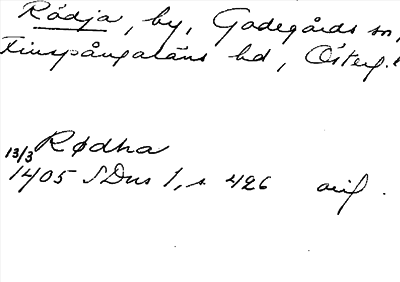 Rödja, by, Godegårds sn,
Finspångaläns hd, Österg.l
Rødha
13/3
1405 SDns 1, s 426 orig.